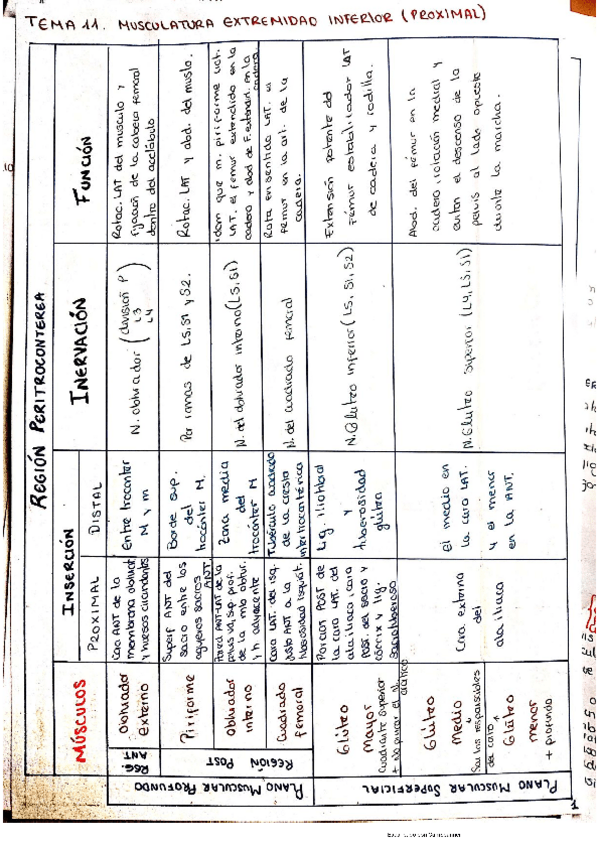 TEMA 11. MUSCULATURA EXTREMIDAD INFERIOR (PROXIMAL)
REGIÓN PERITROCONTEREA
MÚSCULOS
INSERCIÓN
PROXIMAL
DISTAL
INERVACIÓN
FUNCIÓN
PLANO MUSCULAR PROFUNDO
REG. ANT
Obturador
externo
Cara ANT de la
membrana obturat.
y huesos circundantes
Entre trocanter
M y m
N. obturador (división P
L3
L4)
Rotac. LAT del musculo y
fijación de la cabeza femoral
dentro del acetábulo
REGIÓN POST
Piriforme
Superf ANT del
sacro entre los
agujeros sacros
ANT
Borde sup.
del
trocánter M.
Por ramas de L5, S1 y S2.
Rotac. LAT y abd. del muslo.
Obturador
interno
Pared ANT-LAT de la
pelvis vd, sup prof.
de la mb obtur.
y h adyacente
Zona media
del
trocánter M.
N. del obturador interno (L5, S1)
Idem que m. piriforme
LAT. el femur extendido en la
cadera y abd de F. extendi. en la
cadera
Cuadrado
femoral
Cara LAT. del isq.
justo ANT a la
tuberosidad isquiát.
Tubérculo cuadrado
de la cresta
intertrocantérica
N. del cuadrado femoral
Rota en sentido LAT. el
femur en la art. de la
cadera.
PLANO MUSCULAR SUPERFICIAL
Glúteo
Mayor
Cuadrante superior
+ No puntar el N.
ciático
Porcion POST de
la cara LAT. del
ala iliaca, cara
POST. del sacro y
cóccix y lig.
sacrotuberoso
Lig. iliotibial
y
tuberosidad
glútea
N. Glúteo inferior (L5, S1, S2)
Extensión potente del
Fémur estabilizador LAT
de cadera y rodilla.
Glúteo
Medio
Son los responsables
de cara
Glúteo
menor
+ profundo
Cara externa
del
ala iliaca
el medio en
la cara LAT.
y el menor
en la ANT.
N. Glúteo Superior (L4, L5, S1)
Abd. del fémur en la
cadera, rotación medial y
evitan el descenso de la
pelvis al lado opuesto
durante la marcha.
1